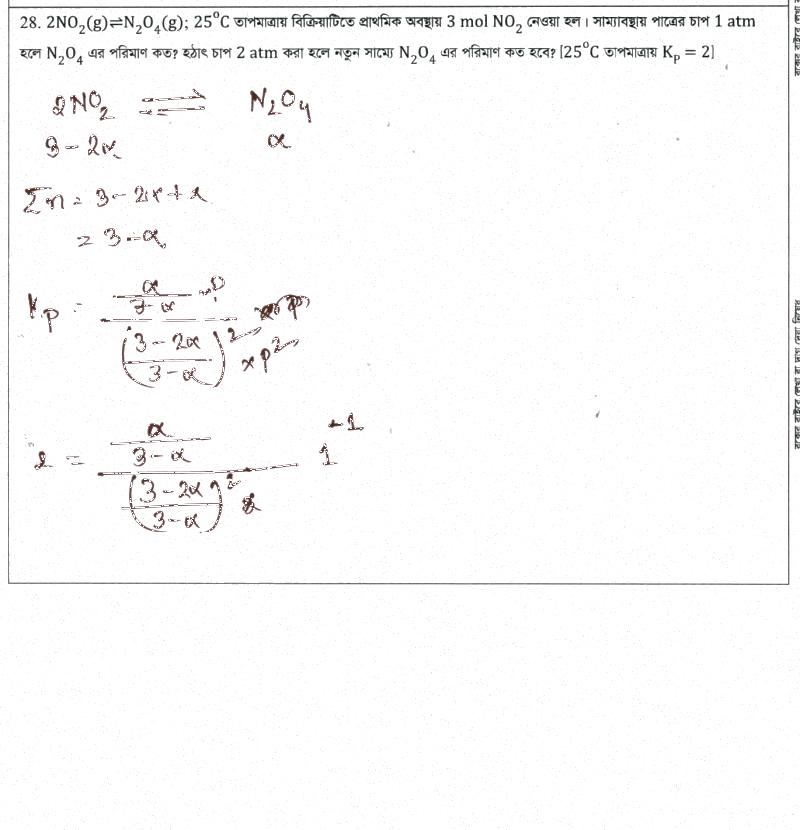 28. 2NO₂(g)⇌N₂O₄(g); 25°C তাপমাত্রায় বিক্রিয়াটিতে প্রাথমিক অবস্থায় 3 mol NO₂ নেওয়া হল। সাম্যাবস্থায় পাত্রের চাপ 1 atm
হলে N₂O₄ এর পরিমাণ কত? হঠাৎ চাপ 2 atm করা হলে নতুন সাম্যে N₂O₄ এর পরিমাণ কত হবে? [25°C তাপমাত্রায় Kₚ = 2]
2NO₂ ⇌ N₂O₄
3 - 2α α
Σn = 3 - 2α + α
= 3 - α
Kp = 
α
3 - α
P
(3 - 2α
3 - α)² × P²
2 = 
α
3 - α
1⁻¹
(3 - 2α
3 - α)²